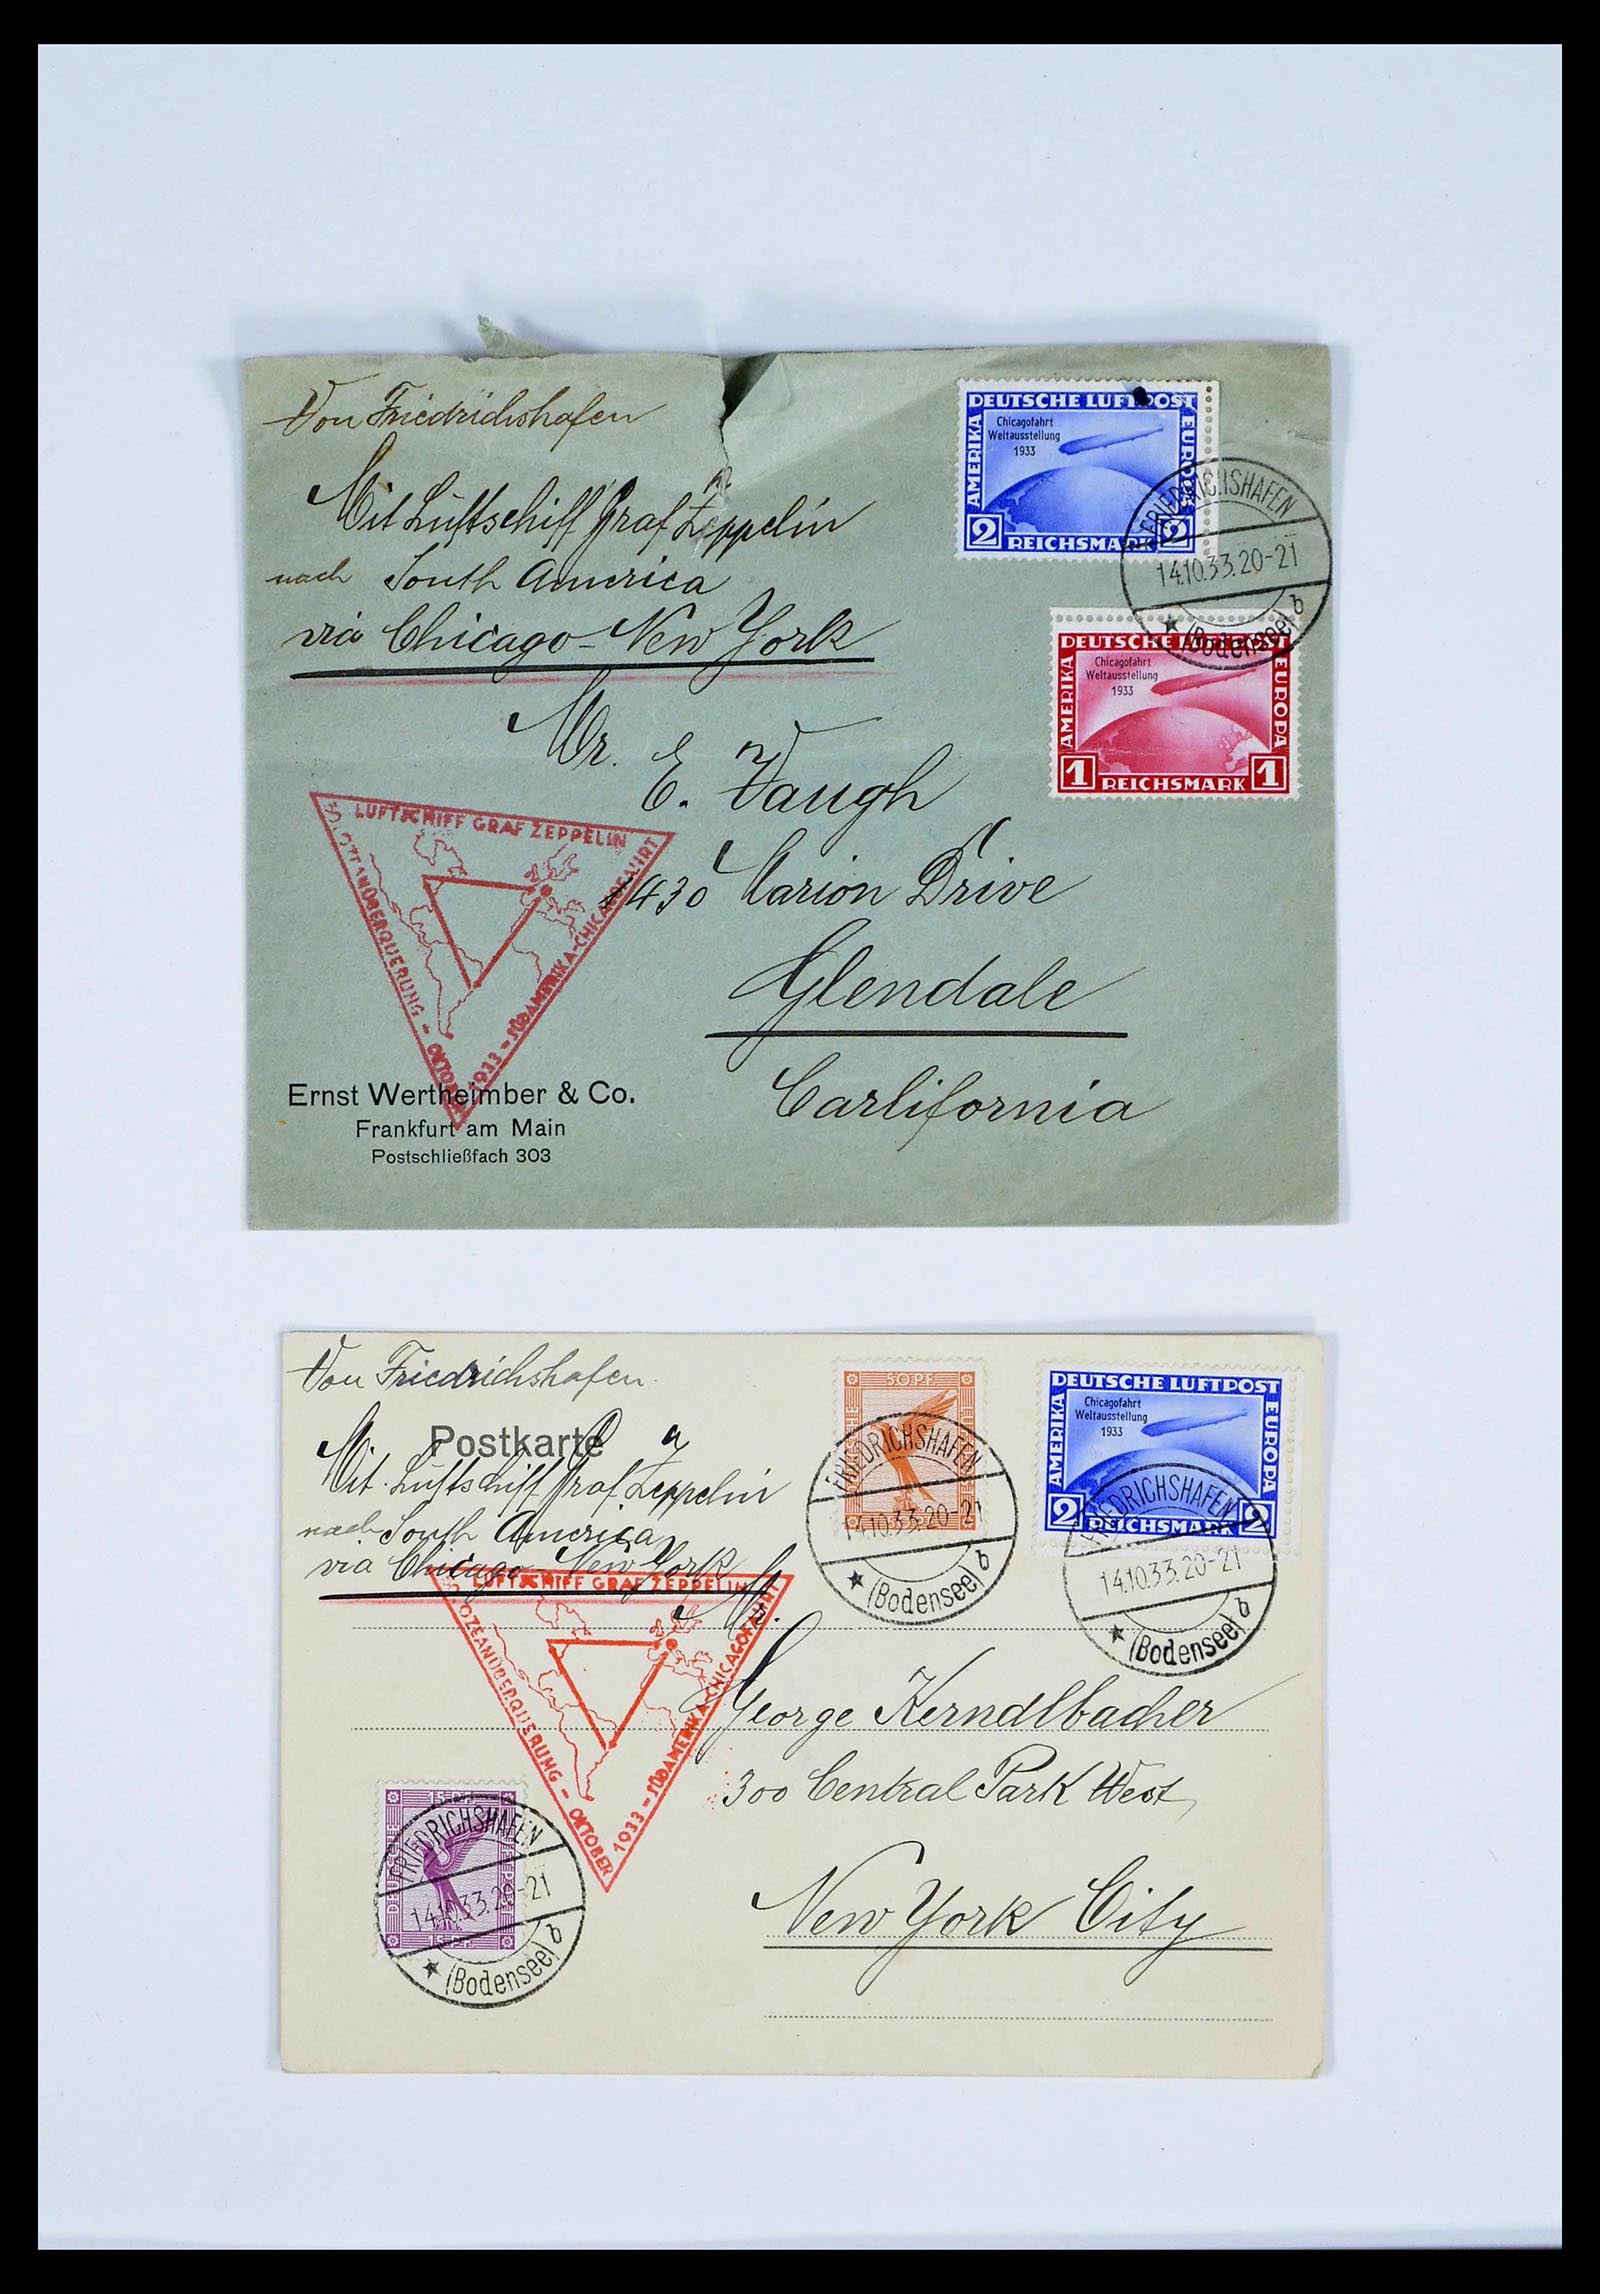 Von Friedrichshafen
Mit Luftschiff Graf Zeppelin
nach South America
via Chicago - New York
DEUTSCHE LUFTPOST
AMERIKA
EUROPA
Chicagofahrt
Weltausstellung
1933
2 REICHSMARK 2
FRIEDRICHSHAFEN
14.10.33.20-21
b
(Bodensee)
DEUTSCHE LUFTPOST
AMERIKA
EUROPA
Chicagofahrt
Weltausstellung
1933
1 REICHSMARK 1
Mr. E. Vaugh
1430 Marion Drive
Glendale
Carlifornia
LUFTSCHIFF GRAF ZEPPELIN
50. OZEANÜBERQUERUNG - OKTOBER
1933 - SÜDAMERIKA-CHICAGOFAHRT
Ernst Wertheimber & Co.
Frankfurt am Main
Postschließfach 303
Von Friedrichshafen
Postkarte
Mit Luftschiff Graf Zeppelin
nach South America
via Chicago New York
50 PF.
FRIEDRICHSHAFEN
14.10.33.20-21
b
(Bodensee)
DEUTSCHE LUFTPOST
AMERIKA
EUROPA
Chicagofahrt
Weltausstellung
1933
2 REICHSMARK 2
FRIEDRICHSHAFEN
14.10.33.20-21
b
(Bodensee)
LUFTSCHIFF GRAF ZEPPELIN
50. OZEANÜBERQUERUNG - OKTOBER
1933 - SÜDAMERIKA-CHICAGOFAHRT
Mr.
George Kerndlbacher
300 Central Park West
New York City
15 PF.
DEUTSCHE
FLUGPOST
15 PF.
FRIEDRICHSHAFEN
14.10.33.20-21
b
(Bodensee)